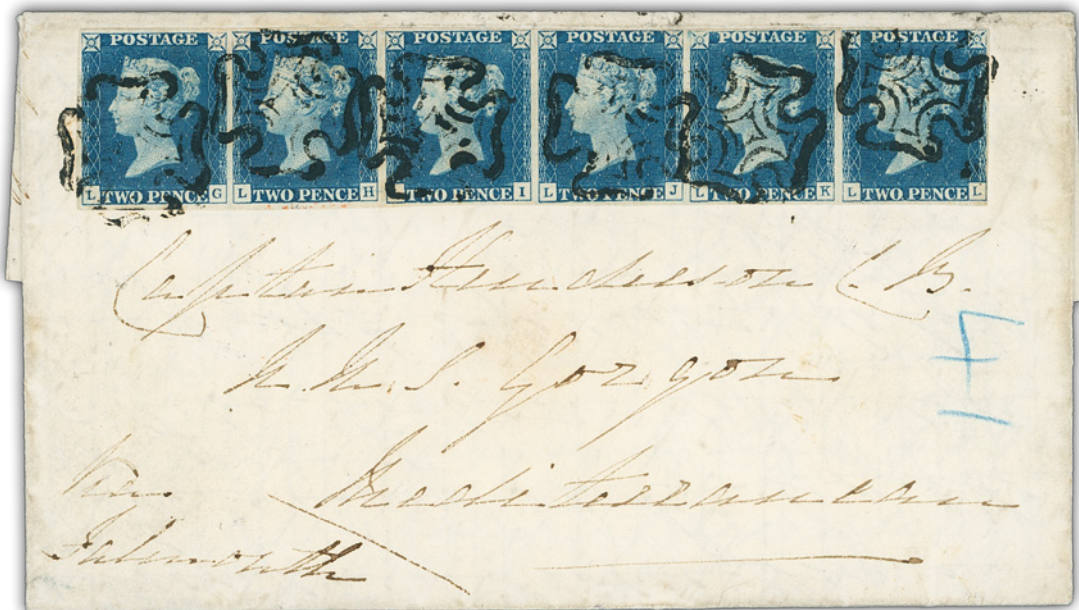 POSTAGE POSTAGE POSTAGE POSTAGE POSTAGE POSTAGE
L TWO PENCE G L TWO PENCE H L TWO PENCE I L TWO PENCE J L TWO PENCE K L TWO PENCE L
Captain Henderson C.B.
H.M.S. Gorgon
Mediterranean
Via
Falmouth